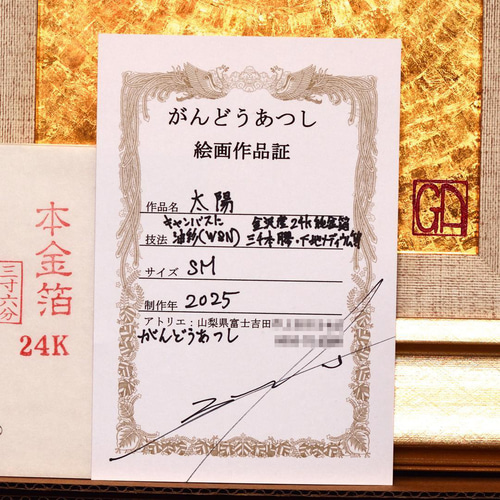 がんどうあつし
絵画作品証
作品名 太陽
キャンバスに 金沢産24K純金箔
技法: 油彩(W&N) 三千本膠・下地メディウム等
サイズ SM
制作年 2025
アトリエ:山梨県富士吉田
がんどうあつし
本金箔
三寸六分
24K
GA